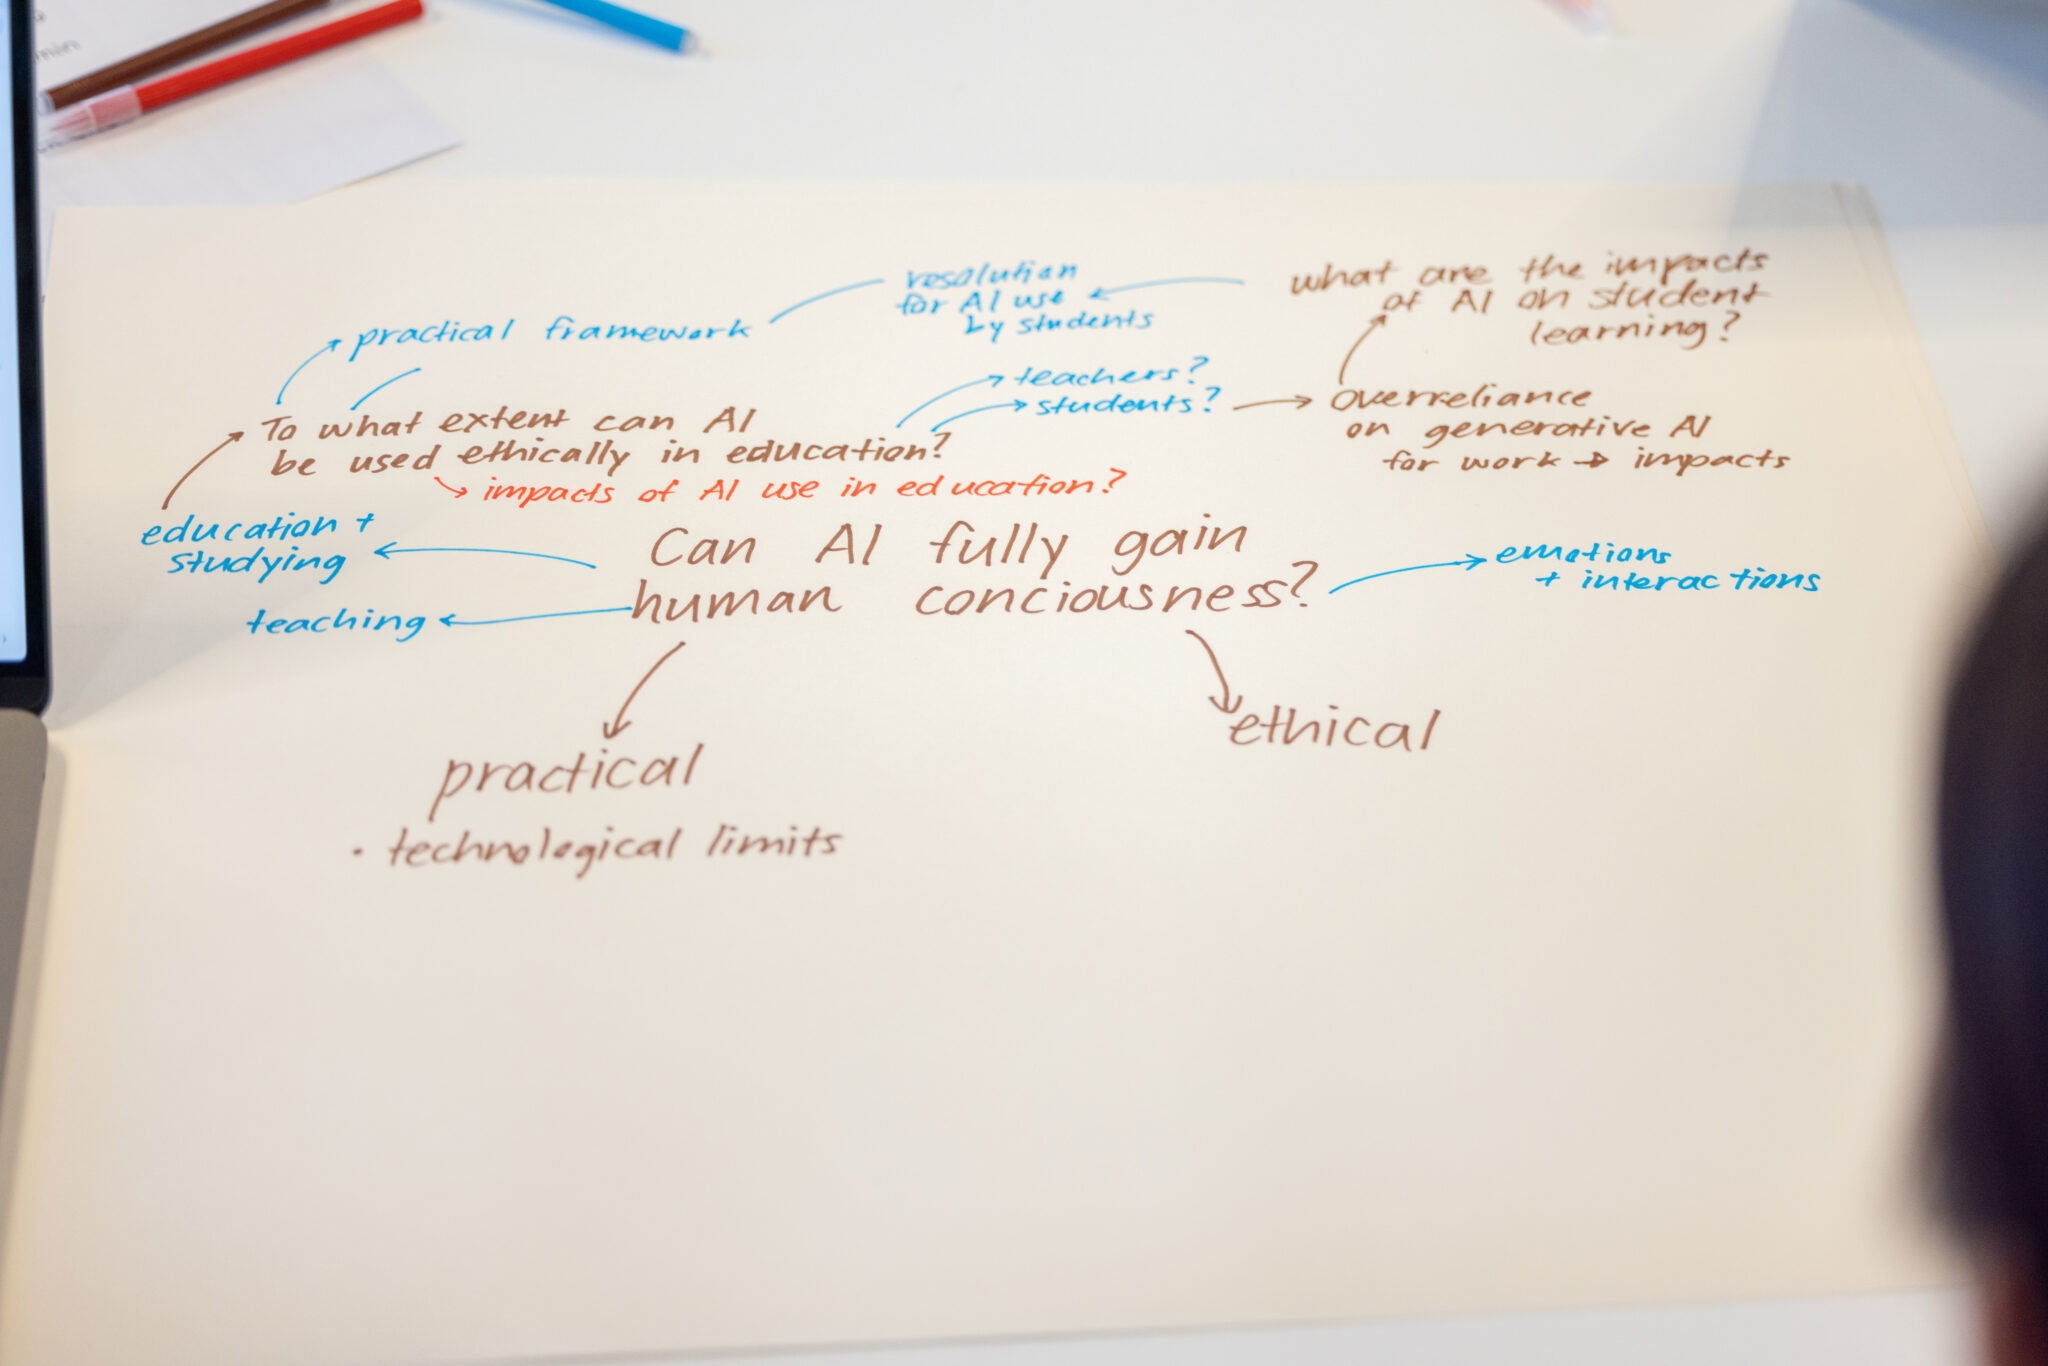 min
resolution
for AI use
by students
what are the impacts
of AI on student
learning?
practical framework
teachers?
students?
overreliance
on generative AI
for work → impacts
To what extent can AI
be used ethically in education?
impacts of AI use in education?
education +
studying
teaching
Can AI fully gain
human conciousness?
emotions
+ interactions
practical
• technological limits
ethical